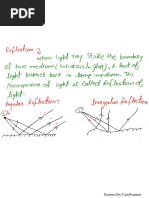 Reflection ?
when light ray Stike the boundary
of two medium (
), A part of
light bounces back in same medium. This
Phenomenon of light is Called Reflection of
light.
Regular Reflection
Irregular Reflection
Scanned by CamScanner